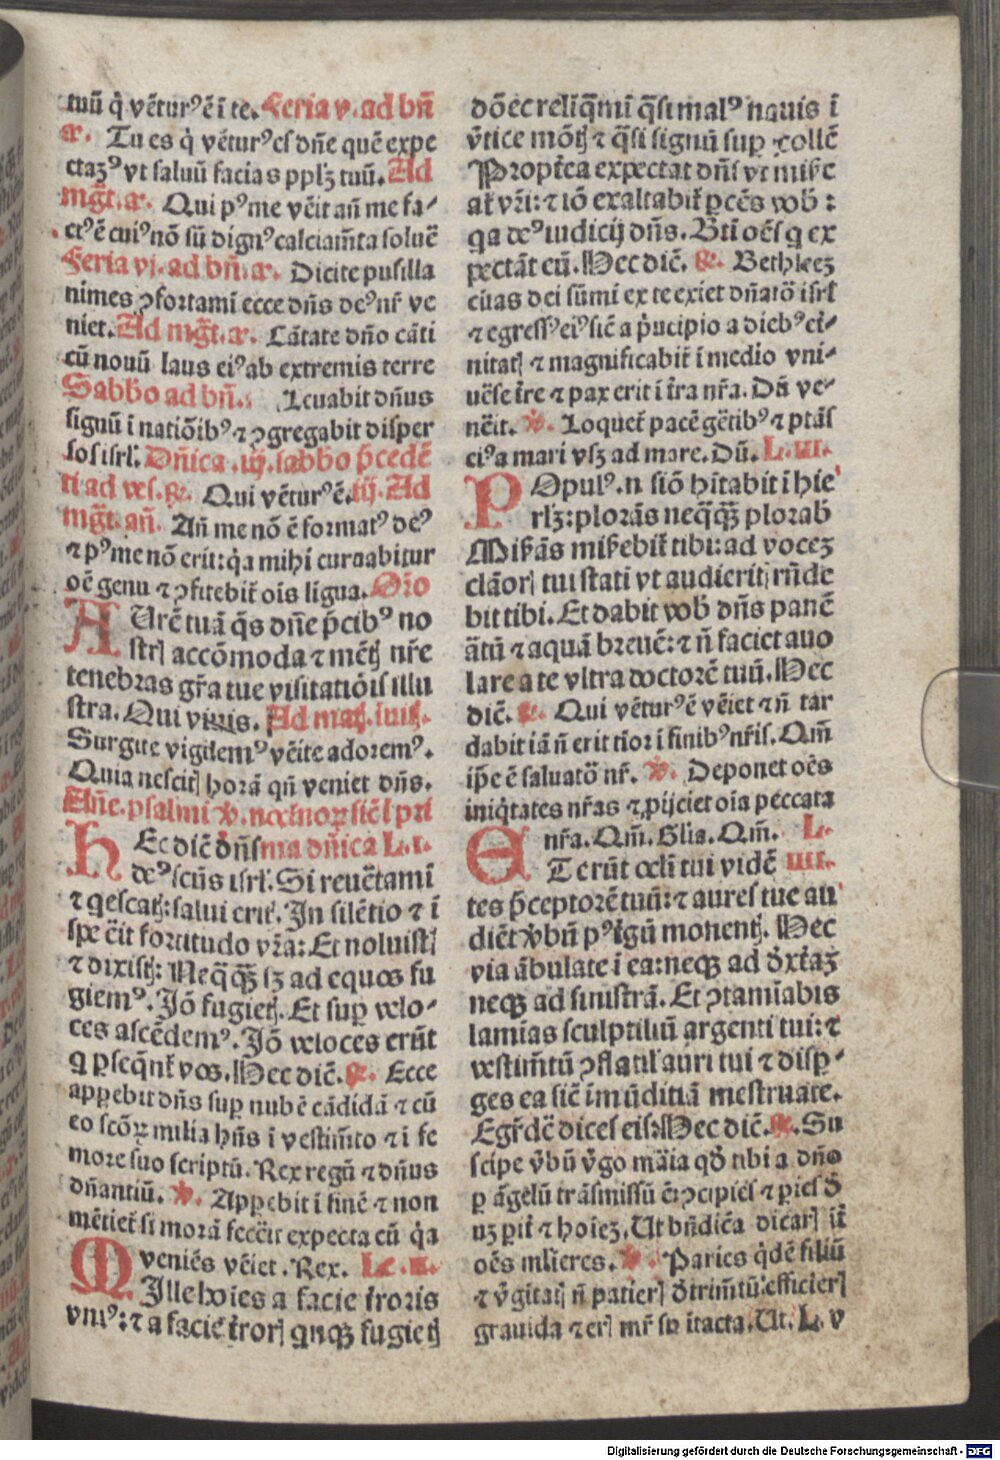 tuū q̇ vētur⁹ ē i te. Feria v. ad bn̄
a᷒. Tu es q̇ vētur⁹ es dn̄e quē expe
ctaꝫ⁹ vt saluū facias pplꝫ tuū. Ad
mgt̄. a᷒. Qui p⁹ me vēit an̄ me fa⸗
ct⁹ ē cui⁹ nō sū dign⁹ calciam̄ta soluē
Feria vj. ad bn̄. a᷒. Dicite pusilla
nimes ꝯfortamī ecce dn̄s de⁹ nr̄ ve
niet. Ad mgt̄. a᷒. Cātate dn̄o cāti
cū nouū laus ei⁹ ab extremis terre
Sabbo ad bn̄. Leuabit dn̄us
signū i natiōib⁹ ⁊ ꝯgregabit disper
sos isrl̄. Dn̄ica .iij. sabbo p̄cedē
ti ad ves. ꝶ. Qui vētur⁹ ē. iij. Ad
mgt̄. an̄. An̄ me nō ē format⁹ de⁹
⁊ p⁹ me nō erit: q̇a mihi curuabitur
oē genu ⁊ ꝯfitebit̄ ois ligua. Oro
AUrē tuā q̄s dn̄e p̄cib⁹ no
strꝭ accōmoda ⁊ mētꝭ nr̄e
tenebras gr̄a tue visitatiōis illu
stra. Qui viuis. Ad mat. iuit.
Surgite vigilem⁹ vēite adorem⁹.
Quia nescitꝭ horā qn̄ veniet dn̄s.
Ane. psalmi ꝟ. noctnoꝝ sic̄ i pri
HEc dic̄ dn̄s ma dn̄ica L. i.
de⁹ scūs isrl̄. Si reuētamī
⁊ q̇escatꝭ: salui eritꝭ. In silētio ⁊ i
spe ēit fortitudo vr̄a: Et noluistꝭ
⁊ dixistꝭ: Neq̄q̄ꝫ sꝫ ad equos fu
giem⁹. Jō fugietꝭ. Et suꝑ velo⸗
ces ascēdem⁹. Jō veloces erūt
q ꝑseq̄nt̄ vos. Hec dic̄. ꝶ. Ecce
apꝑebit dn̄s suꝑ nubē cādidā ⁊ cū
eo scōꝝ milia hn̄s i vestim̄to ⁊ i fe
more suo scriptū. Rex regū ⁊ dn̄us
dn̄antiū. ꝟ. Apꝑebit i finē ⁊ non
mētiet̄ si morā fecēit expecta eū q̇a
veniēs vēiet. Rex. Le. ii.
MJlle hoies a facie t̄roris
vni⁹: ⁊ a facie t̄rorꝭ qnqꝫ fugietꝭ
dōec reliq̄mi q̄si mal⁹ nauis i
v̄tice mōtꝭ ⁊ q̄si signū suꝑ collē
Propt̄ea expectat dn̄s vt misē
at̄ vr̄i: ⁊ iō exaltabit̄ ꝑcēs vob̄:
qa de⁹ iudicij dn̄s. Bti oēs q ex
pectāt eū. Hec dic̄. ꝶ. Bethleeꝫ
ciuitas dei sūmi ex te exiet dn̄atō isrl̄
⁊ egress⁹ ei⁹ sic̄ a p̄ncipio a dieb⁹ et⸗
nitatꝭ ⁊ magnificabit̄ i medio vni⸗
uēse t̄re ⁊ pax erit i t̄ra nr̄a. Dū ve⸗
nēit. ꝟ. Loquet̄ pacē gētib⁹ ⁊ ptās
ei⁹ a mari vsꝫ ad mare. Dū. L. iii.
POpul⁹ .n siō hītabit i hie⸗
rlꝫ: plorās neq̄q̄ꝫ plorab̄
Misās misebit̄ tibi: ad vocez
clāorꝭ tui stati vt audierit rn̄de
bit tibi. Et dabit vob̄ dn̄s panē
ātū ⁊ aquā breuē: ⁊ n̄ faciet auo
lare a te vltra doctorē tuū. Hec
dic̄. ꝶ. Qui vētur⁹ ē vēiet ⁊ n̄ tar
dabit iā n̄ erit tior i finib⁹ nr̄is. Qm̄
ip̄e ē saluatō nr̄. ꝟ. Deponet oēs
iniq̇tates nr̄as ⁊ ꝓijciet oīa peccata
nr̄a. Qm̄. Glia. Qm̄. L.
ET erūt ocli tui vidē iiii.
tes p̄ceptorē tuū: ⁊ aures tue au
diēt ꝟbū p⁹ t̄gū monentꝭ. Hec
via ābulate i ea: neqꝫ ad dxt̄aꝫ
neqꝫ ad sinistrā. Et ꝯtamīabis
lamīas sculptiliū argenti tui: ⁊
vestim̄tū ꝯflatil̄ auri tui ⁊ disꝑ⸗
ges ea sic̄ imūditiā mestruate.
Egr̄dē dices eis: Hec dic̄. ꝶ. Su
scipe v̄bū v̄go māia qd̄ tibi a dn̄o
ꝑ āgelū trāsmissū ē: ꝯcipies ⁊ pies d̄
uꝫ pit̄ ⁊ hoieꝫ. Ut bn̄dic̄a dicarꝭ it̄
oēs mlieres. ꝟ. Paries q̇dē filiū
⁊ v̄gitatꝭ n̄ patierꝭ d̄trim̄tū: efficierꝭ
grauida ⁊ erꝭ mr̄ sp itacta. Ut. L. v
Digitalisierung gefördert durch die Deutsche Forschungsgemeinschaft - DFG